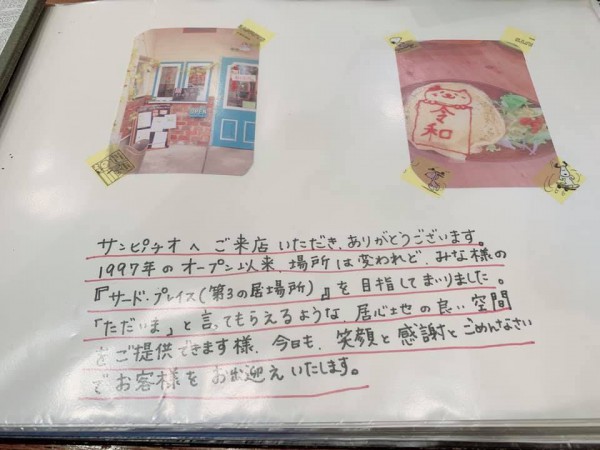 令和
サンピチオへ ご来店いただき、ありがとうございます。
1997年のオープン以来、場所は変われど、みな様の
『サード・プレイス(第3の居場所)』を目指してまいりました。
「ただいま」と言ってもらえるような 居心地の良い空間
をご提供できます様、今日も、笑顔と感謝とごめんなさい
でお客様をお出迎えいたします。